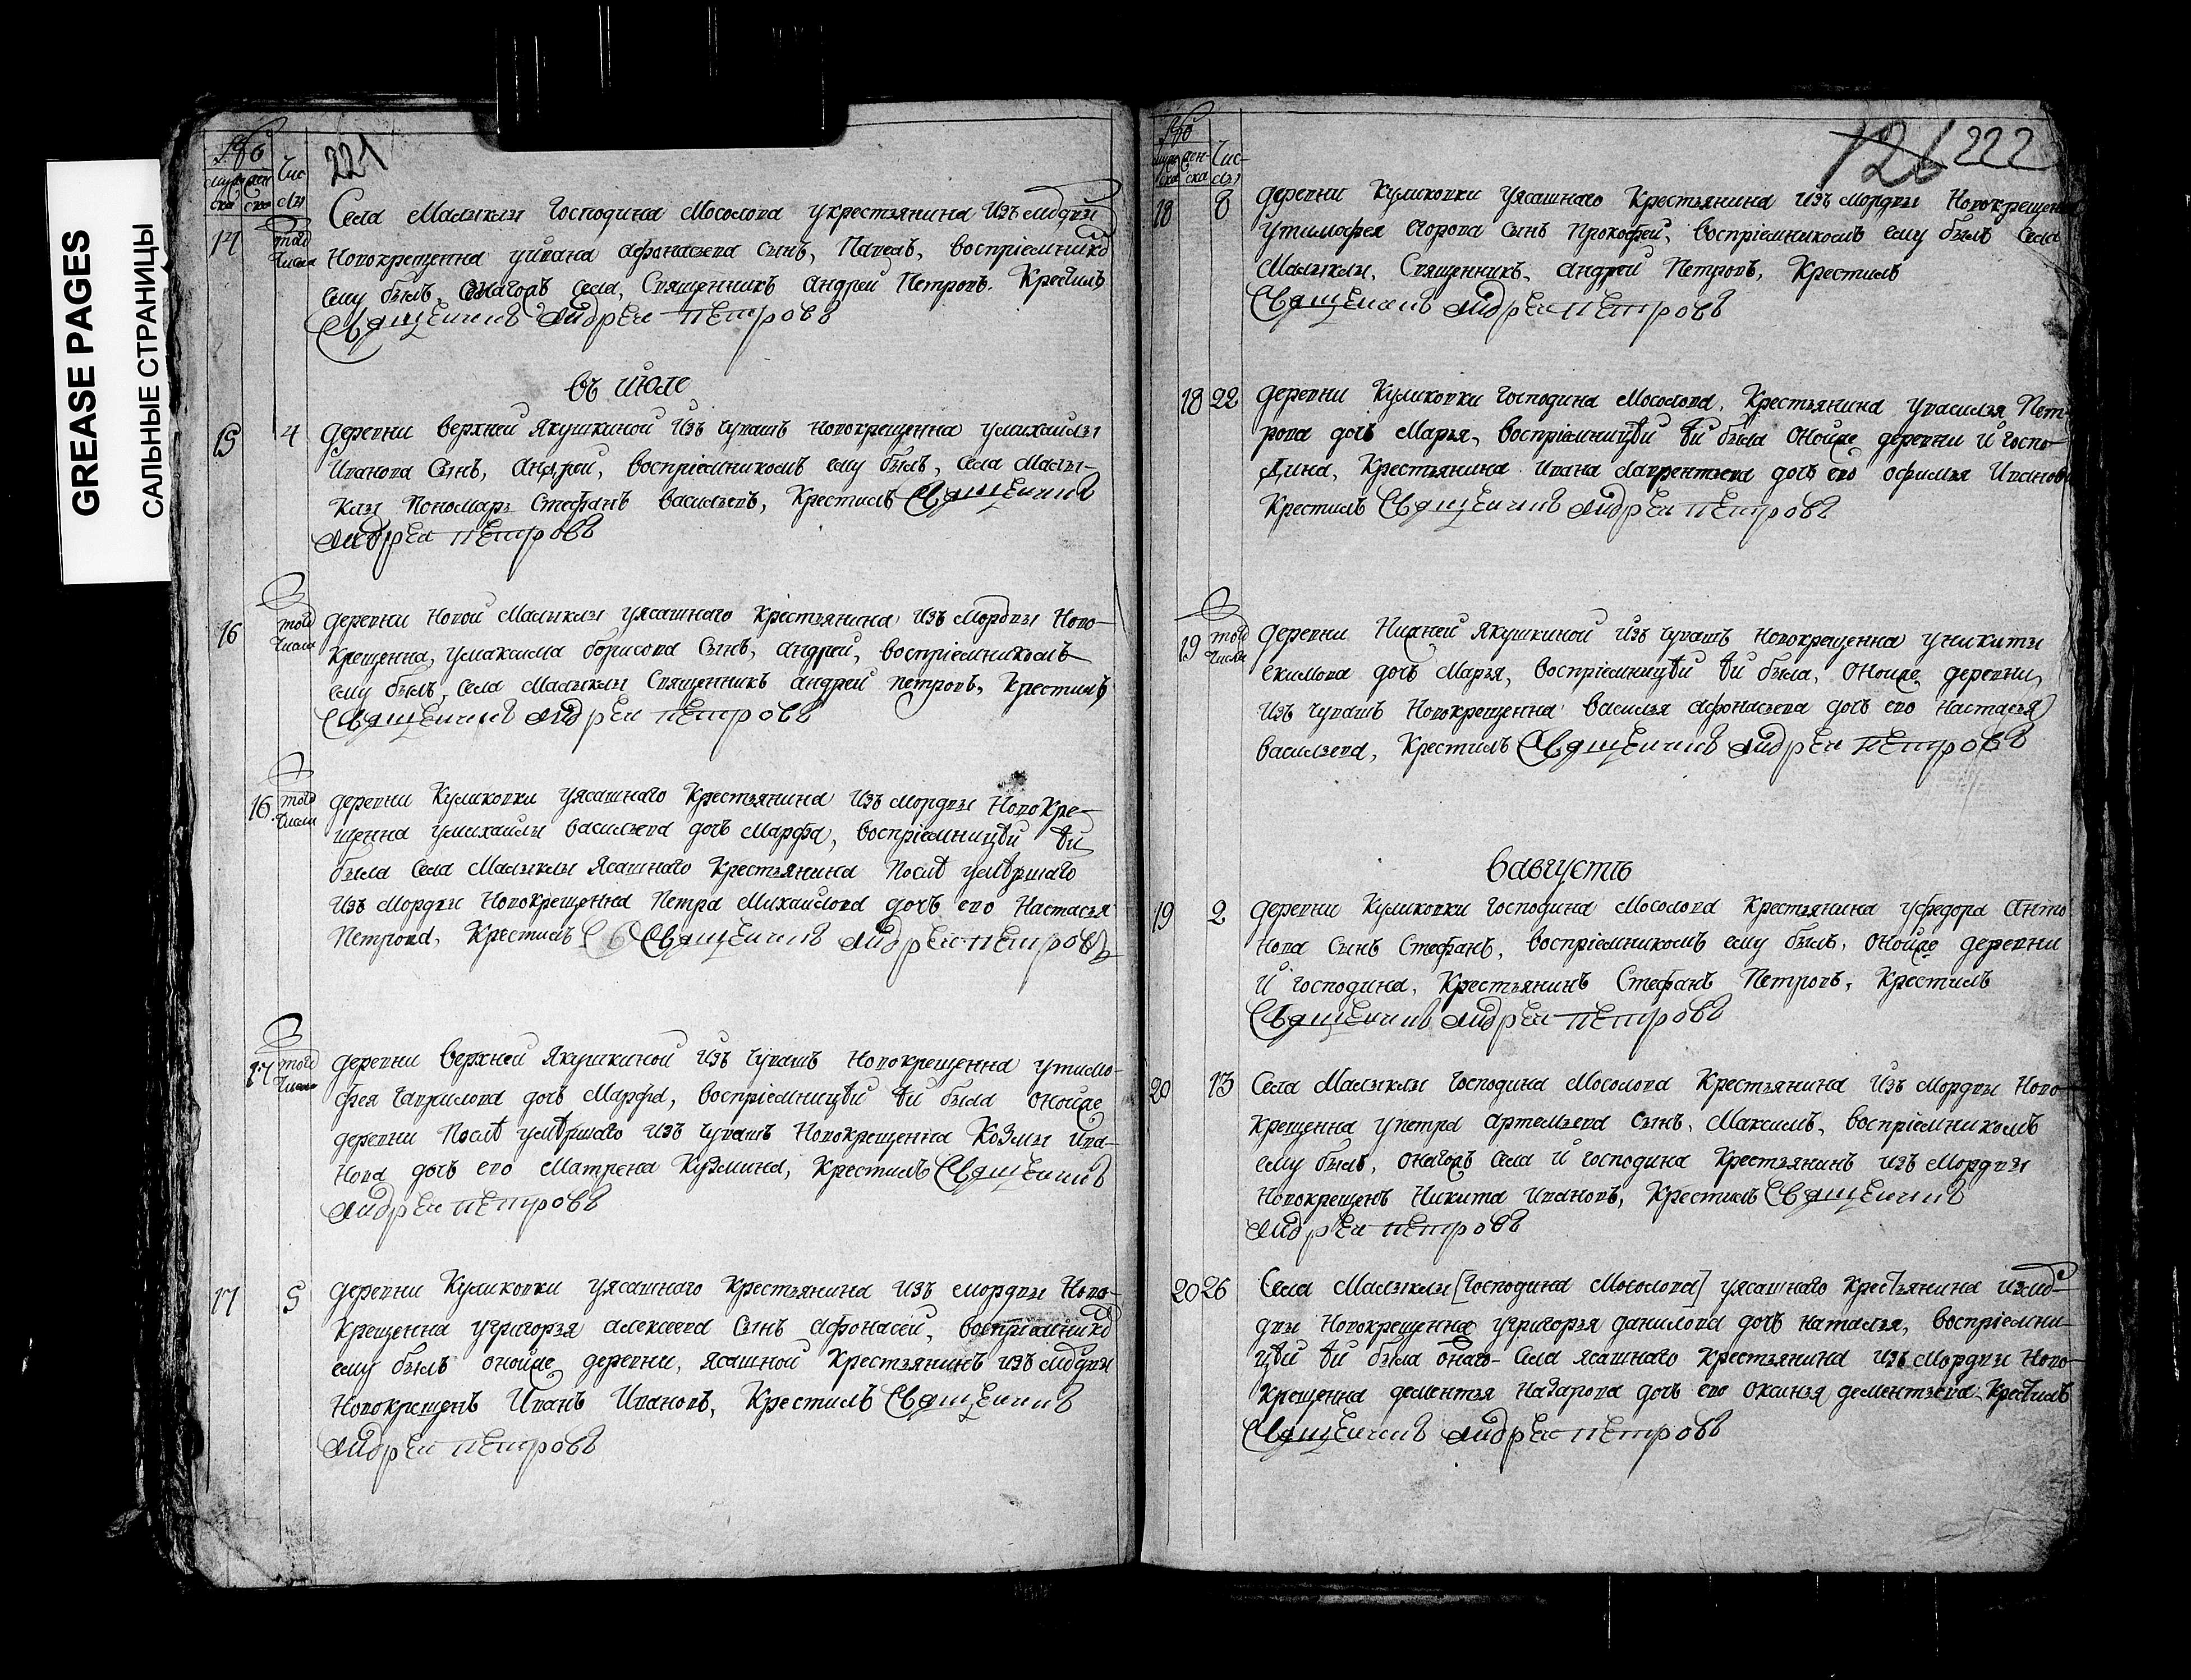 GREASE PAGES
САЛЬНЫЕ СТРАНИЦЫ
221
Чис-
лы
14
того
числа
Села Малыклы Господина Мосолова укрестьянина изъ мордвы
Новокрещенна уивана афонасьева сынъ, Павелъ, воспрiемнико
ему былъ, онагожъ села, Священникъ Андрей Петровъ. Крестилъ
Священникъ Андреи Петровъ
въ июле
15
4
деревни верхней Якушкиной изъ чувашъ новокрещенна умихаилы
Иванова сынъ, Андрей, воспрiемникомъ ему былъ, села Малы-
клы Пономарь Стефанъ васильевъ, Крестилъ Священникъ
Андреи Петровъ
16
того
числа
деревни Новой Малыклы уясашнаго крестьянина изъ Мордвы Ново-
крещенна, умаксима борисова сынъ, андрей, воспрiемникомъ
ему былъ, села Малыклы Священникъ андрей петровъ, Крестилъ
Священникъ Андреи Петровъ
16
того
числа
деревни Куликовки уясашнаго Крестьянина изъ мордвы Новокре-
щенна умихаилы васильева дочь Марфа, воспрiемницѣй ѣй
была Села Малыклы Ясашнаго Крестьянина Послѣ умѣршаго
изъ Мордвы Новокрещенна Петра Михаилова дочь ево Настасья
Петрова, Крестилъ Священникъ Андреи Петровъ
17
того
числа
деревни верхней Якушкиной изъ чувашъ Новокрещенна утимо-
фея гаврилова дочь Марфа, воспрiемницѣй ѣй была онойже
деревни Послѣ умѣршаго изъ чувашъ Новокрещенна Козмы ива-
нова дочь ево Матрена Кузмина, Крестилъ Священникъ
Андреи Петровъ
17
5
деревни Куликовки уясашнаго крестьянина изъ мордвы Ново-
крещенна угригорья алексеева сынъ афонасей, воспрiемнико
ему былъ онойже деревни, ясашной Крестьянинъ изъ мордвы
Новокрещенъ Иванъ Ивановъ, Крестилъ Священникъ
Андреи Петровъ
126 222
Чис-
лы
18
8
деревни Куликовки уясашнаго Крестьянина изъ мордвы Новокрещенн
утимофея Егорова сынъ Прокофей, воспрiемникомъ ему былъ села
Малыклы, Священникъ, андрей Петровъ, Крестилъ
Священникъ Андреи Петровъ
18
22
деревни Куликовки господина Мосолова, Крестьянина увасилья Пет-
рова дочь Марья, воспрiемницѣй ѣй была онойже деревни и госпо-
дина, Крестьянина ивана лаврентьева дочь ево офимья Иванов
Крестилъ Священникъ Андреи Петровъ
19
того
числа
деревни Нижней Якушкиной изъ чувашъ новокрещенна уникиты
екимова дочь Марья, воспрiемницѣй ѣй была, онойже деревни,
изъ чувашъ Новокрещенна василья афонасьева дочь ево Настасья
васильева, Крестилъ Священникъ Андреи Петровъ
Вавгустѣ
19
2
деревни Куликовки господина Мосолова Крестьянина уфедора Анто
нова сынъ Стефанъ, воспрiемникомъ ему былъ, онойже деревни
и господина, Крестьянинъ Стефанъ Петровъ, Крестилъ
Священникъ Андреи Петровъ
20
13
Села Малыклы господина Мосолова Крестьянина изъ Мордвы Ново-
крещенна упетра артемьева сынъ, Максимъ, воспрiемникомъ
ему былъ, онагожъ села и господина Крестьянинъ изъ Мордвы
Новокрещенъ Никита ивановъ, Крестилъ Священникъ
Андреи Петровъ
20
26
Села Малыклы [господина Мосолова] уясашнаго крестьянина измо-
двы Новокрещенна угригорья данилова дочь наталья, воспрiемни-
цѣй ѣй была онаго- села ясашнаго крестьянина изъ Мордвы Ново-
крещенна дементья назарова дочь ево оксинья дементьева Крестилъ
Священникъ Андреи Петровъ